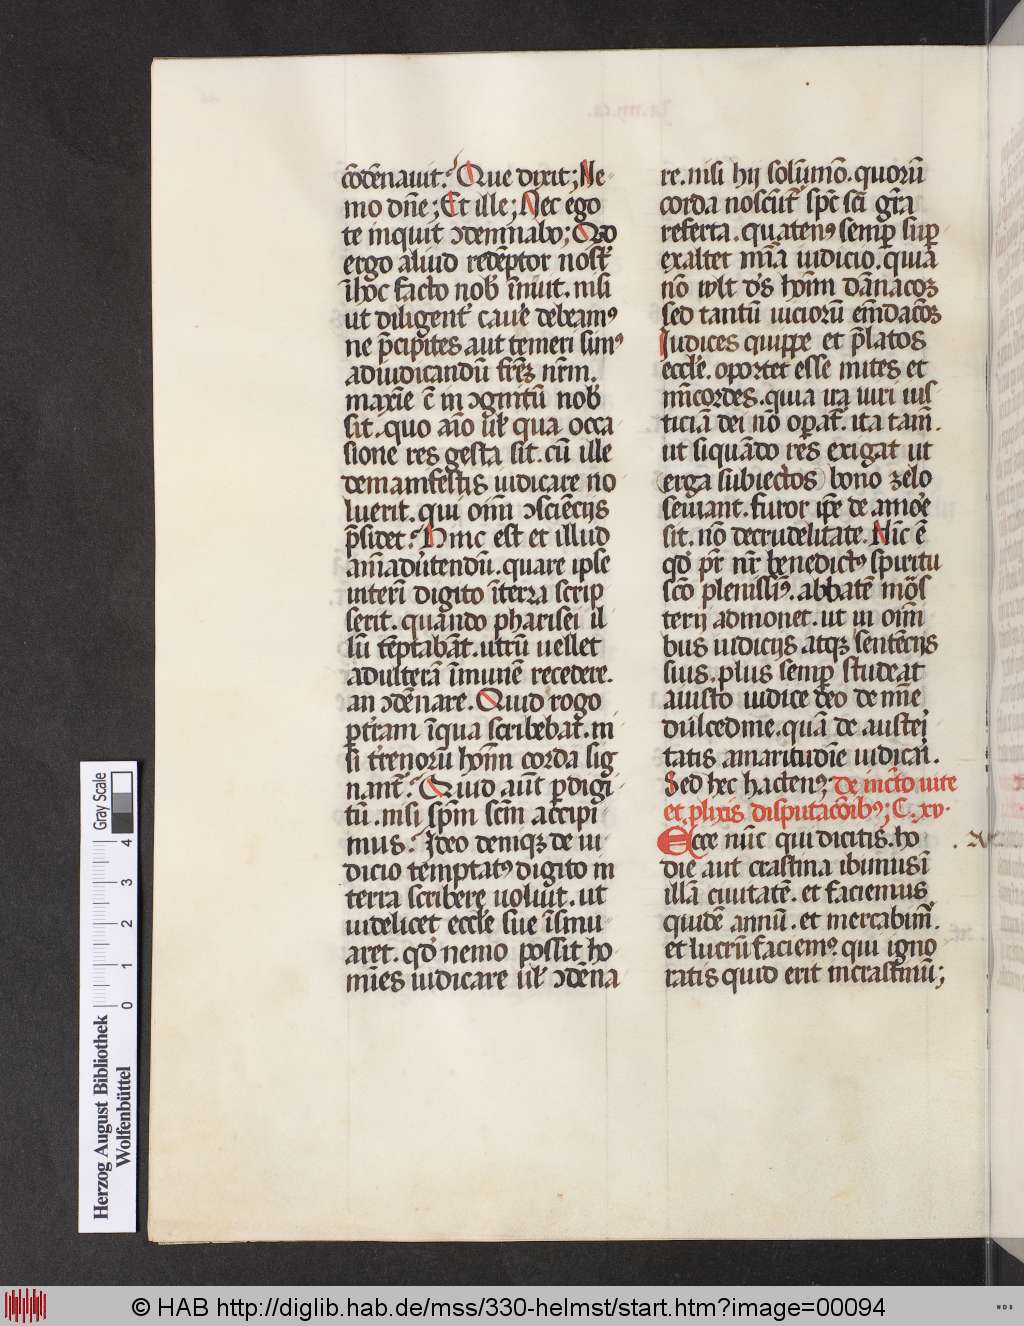 cōdēnauit. Que dixit; Ne
mo dn̄e; Et ille; Nec ego
te inquit ↄdemnabo; Qͥd
ergo aliud redēptor nost̄
ī hoc facto nob̄ īnuit. nisi
ut diligent̄ cauē debeamꝰ
ne p̄cipites aut temeri simꝰ
ad iudicandū fr̄eꝫ nr̄m.
maxīe ē in ↄgnitū nob̄
sit. quo aīo ul̄ qua occa
sione res gesta sit. cū ille
de manifestis iudicare no
luerit. qui om̄i ↄsciēcijs
p̄sidet. Hinc est et illud
aīaduertendū. quare ipse
interī digito ī terra scrip
serit. quando pharisei il
lū tēptabāt. utrū uellet
adulterā īmunē recedere.
an ↄdēnare. Quid rogo
ꝑ t̄ram ī qua scribebat̄. ni
si t̄renorū hoīm corda sig
nant̄. Quid aūt ꝑ digi
tū. nisi sp̄m sc̄m accipi
mus. Ideo deniqꝫ de iu
dicio temptatꝰ digito in
terra scribere uoluit. ut
uidelicet eccl̄e sue īsinu
aret. qd̄ nemo possit ho
mīes iudicare ul̄ ↄdēna
re. nisi hij solūmō. quorū
corda noscūt̄ sp̄c sc̄i gr̄a
referta. quatenꝰ semꝑ suꝑ
exaltet mīa iudicio. quia
nō wlt dꝰs hoīm dānacōꝫ
sed tantū uiciorū emdacōꝫ
Iudices quippe et p̄latos
eccl̄e. oportet esse mites et
mīcordes. quia ira uiri ius
ticiā dei nō oꝑat̄. ita tam̄.
ut si quādo res exigat ut
erga subiectos bono zelo
seuiant. furor ip̄e de amoē
sit. nō de crudelitate. Nīc ē
qd̄ pr̄ nr̄ benedictꝰ spiritu
sc̄o plenissīꝰ. abbatē mōs
terij admonet. ut in om̄i
bus iudicijs atqꝫ sentēcijs
suis. plus semꝑ studeat
a iusto iudice deo de mīe
dulcedine. quā de austeī
tatis amaritudīe iudicaī.
Sed hec hactenꝰ; de inc̄to uite
et ꝓlixis disputacōibꝰ; C. xv.
Ecce nūc qui dicitis. ho
die aut crastina ibimus ī
illā ciuitatē. et faciemus
quidē annū. et mercabim̄.
et lucrū faciemꝰ. qui igno
ratis quid erit in crastinū;
Gray Scale
0 1 2 3 4
Herzog August Bibliothek
Wolfenbüttel
© HAB http://diglib.hab.de/mss/330-helmst/start.htm?image=00094